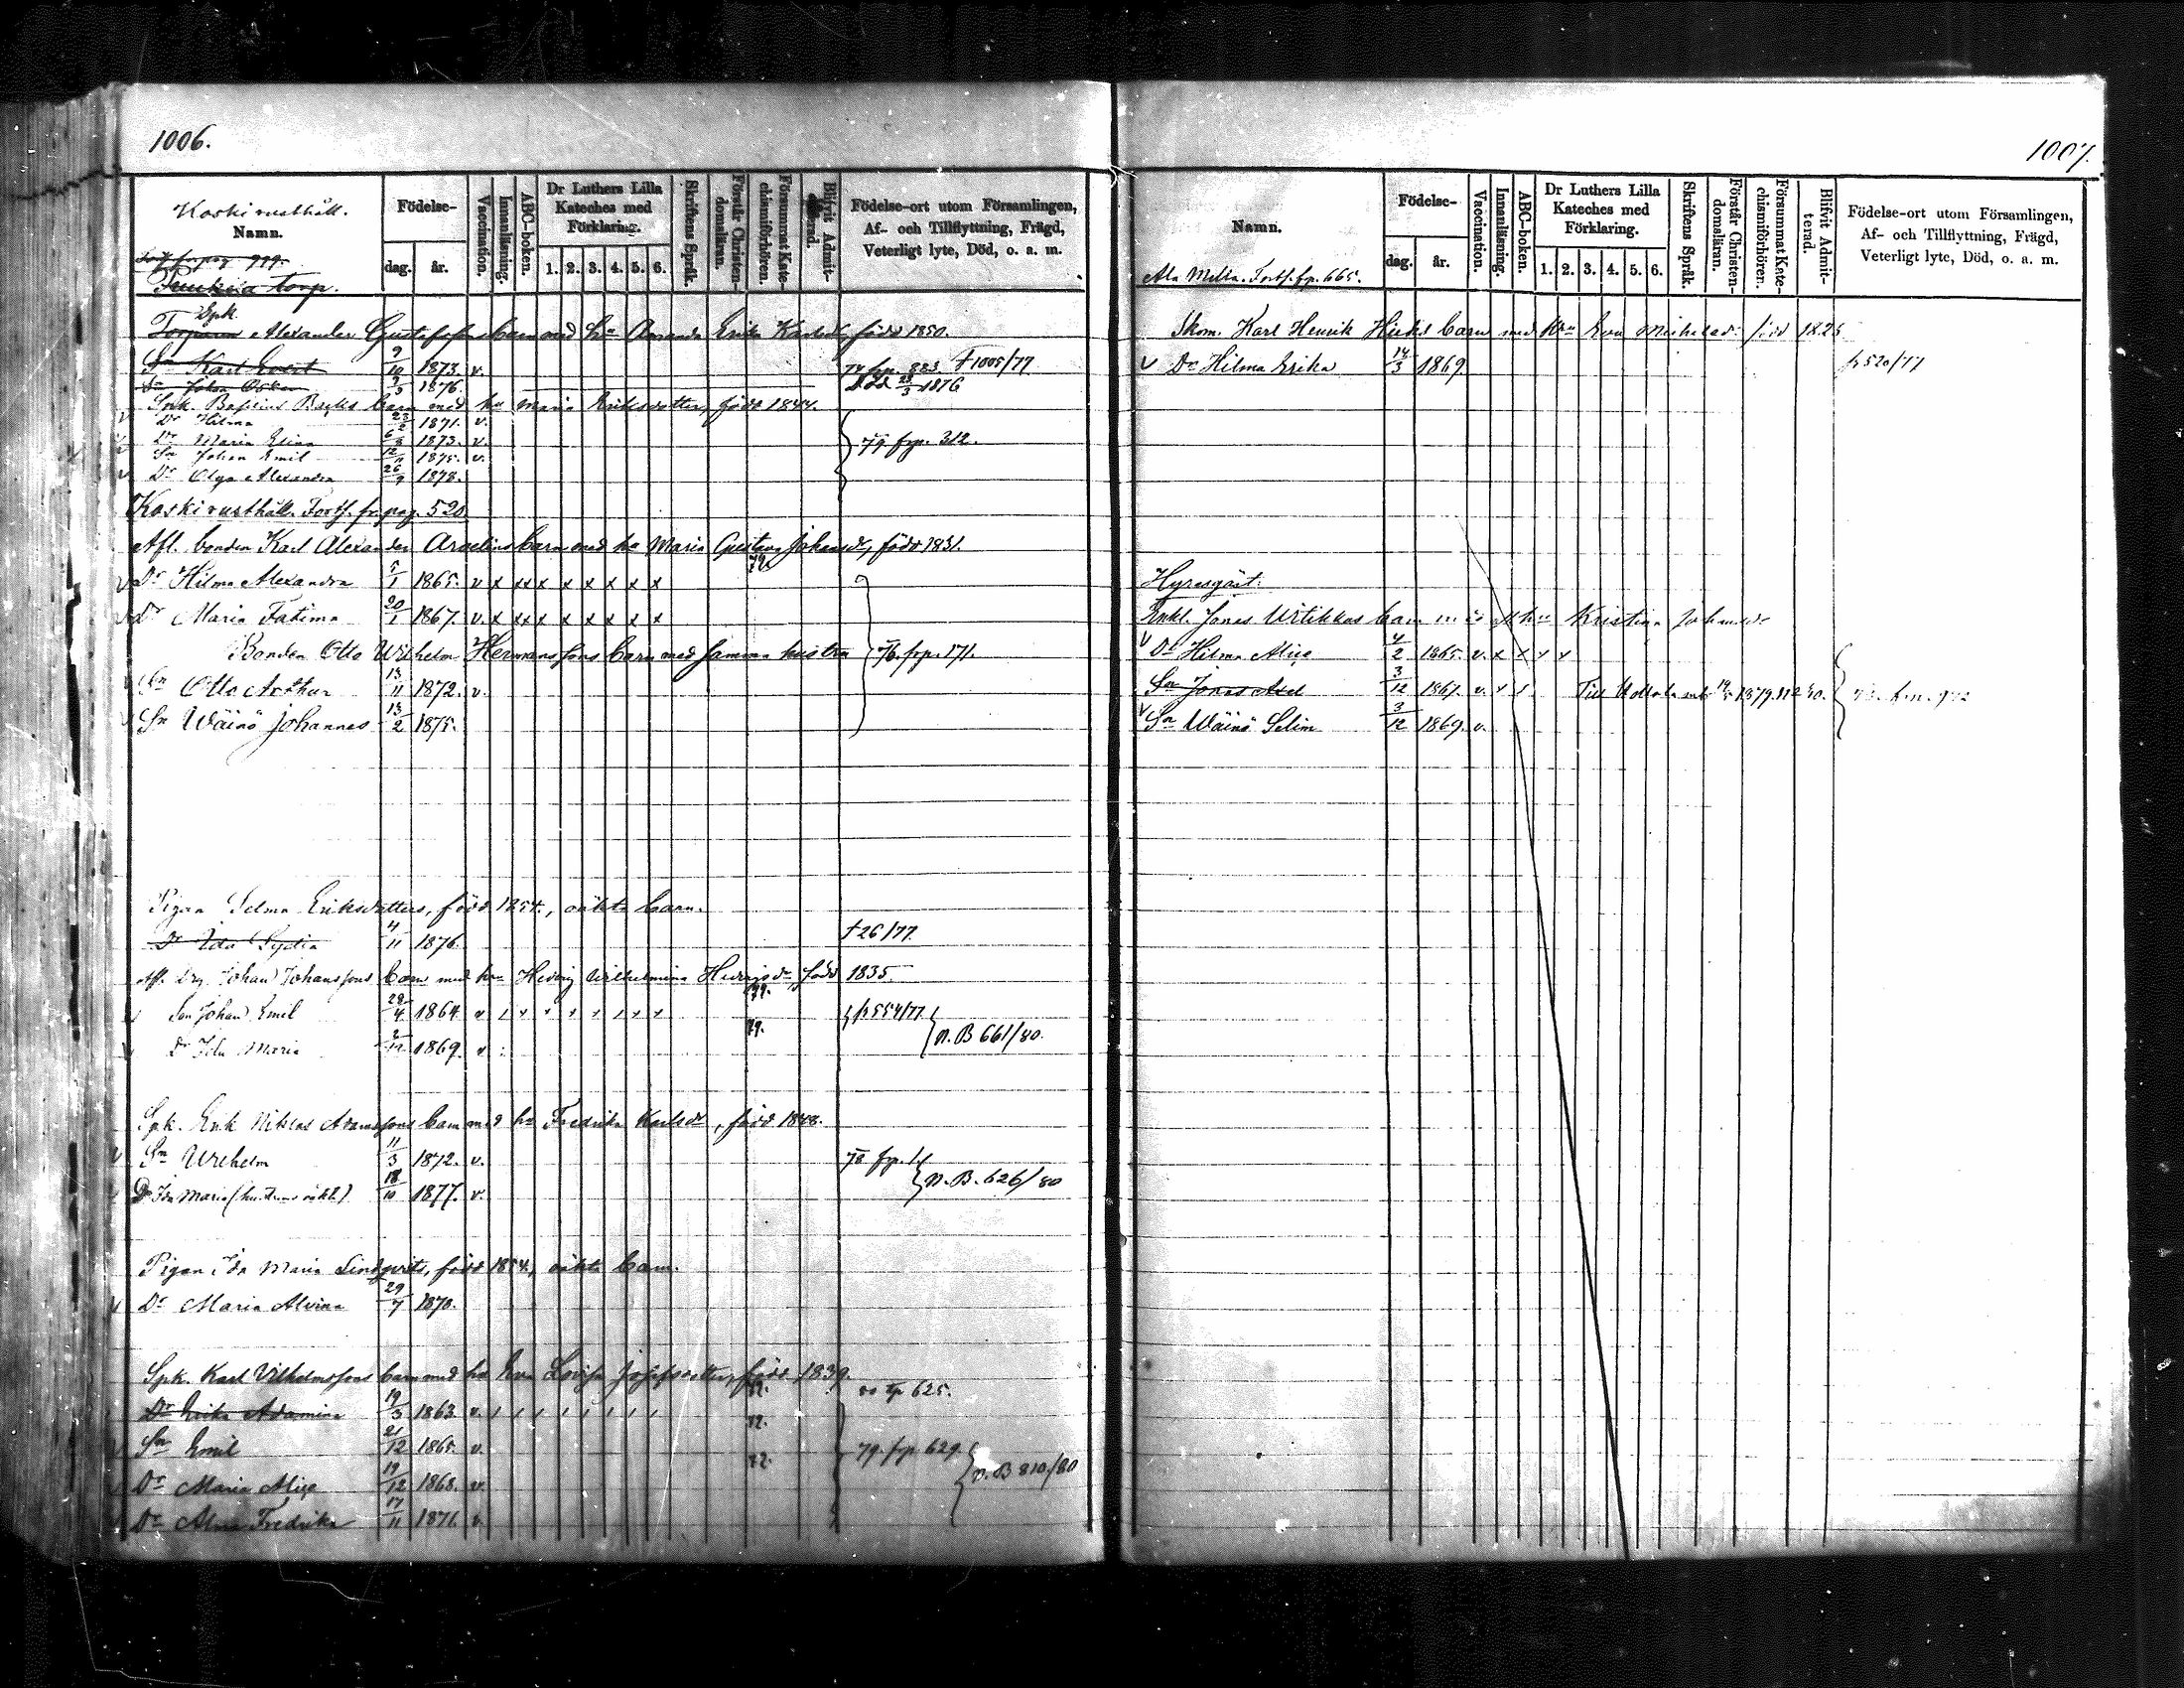 1006.
Koski rusthåll.
Namn.
Födelse-
dag. år.
Vaccination.
Innanläsning.
ABC-boken.
Dr Luthers Lilla Kateches med Förklaring.
1. 2. 3. 4. 5. 6.
Skriftens Språk.
Förstår Christendomsläran.
Försummat Katechismiförhören.
Blifvit Admitterad.
Födelse-ort utom Församlingen, Af- och Tillflyttning, Frägd, Veterligt lyte, Död, o. a. m.
torp.
Spk.
Torparen Alexander Gustafssons barn med hu Amanda Erika Karlsdr, född 1850.
Sn Karl Evert 9/10 1873. v. 77 frp. 883 † 1005/77
Sn Johan Oskar 1876. Död 28/3 1876
Spk. Backs barn med hu Maria Eriksdotter, född 1844.
v Dr Hilma 23/2 1871. v.
Dr Maria Elina 1873. v.
Sn Johan Emil 1875. v. 79. frp. 312.
v Dr Olga Alexandra 26/9 1878.
Koski rusthåll. Forts. fr. pag. 520
Afl. bonden Karl Alexander barn med hu Maria Gustava Johansdr, född 1831.
v Dr Hilma Alexandra 5/1 1865. v x xx x x x x x x
v Dr Maria Fatima 20/1 1867. v. x xx x x x x x x
Bonden Otto Wilhelm Hermanssons barn med samma hustru 76. frp. 171.
Sn Otto Arthur 13/11 1872. v.
v Sn Wäinö Johannes 13/2 1875.
Pigan Selma Eriksdotters, född 1854., oäkta barn.
Dr Ida Lydia 4/11 1876. † 26/77.
Afl. Johan Johanssons barn med hu Hedvig Wilhelmina född 1835
v Son Johan Emil 28/4 1864 v 79. p 554/77.
v Dr Ida Maria 1869. v 79. N. B 661/80.
Spk. Erik Niklas Adamssons barn med hu Fredrika Karlsdr, född 1848.
v Sn Wilhelm 11/3 1872. v. 78 frp.
Dr Ida Maria (hustruns oäkt.) 18/10 1877. v. N. B. 626/80
Pigan Ida Maria Lindqvists, född 1854, oäkta barn.
v Dr Maria Alvina 29/7 1870.
Spk. Karl Vilhelmssons barn med hu Eva Lovisa Josefsdotter, född 1839.
Dr Erika Adamina 19/3 1863 v. 625.
Sn Emil 21/12 1865. v. 79. frp 629.
Dr Maria Alice 19/12 1868. v. N. B 810/80
Dr Alma Fredrika 17/11 1871. v.
1007.
Namn.
Födelse-
dag. år.
Vaccination.
Innanläsning.
ABC-boken.
Dr Luthers Lilla Kateches med Förklaring.
1. 2. 3. 4. 5. 6.
Skriftens Språk.
Förstår Christendomsläran.
Försummat Katechismiförhören.
Blifvit Admitterad.
Födelse-ort utom Församlingen, Af- och Tillflyttning, Frägd, Veterligt lyte, Död, o. a. m.
Ala Forts. fp. 665.
Skom. Karl Henrik barn med hu Eva född
v Dr Hilma Erika 14/3 1869 p 520/77
Hyresgäst.
Enkl. Jonas barn med hu Kristina
v Dr Hilma Alice 4/2 1865. v. x x x x
Sn Jonas Axel 3/12 1867. v. Till 1879.
v Sn Wäinö Selim 3/12 1869. v.